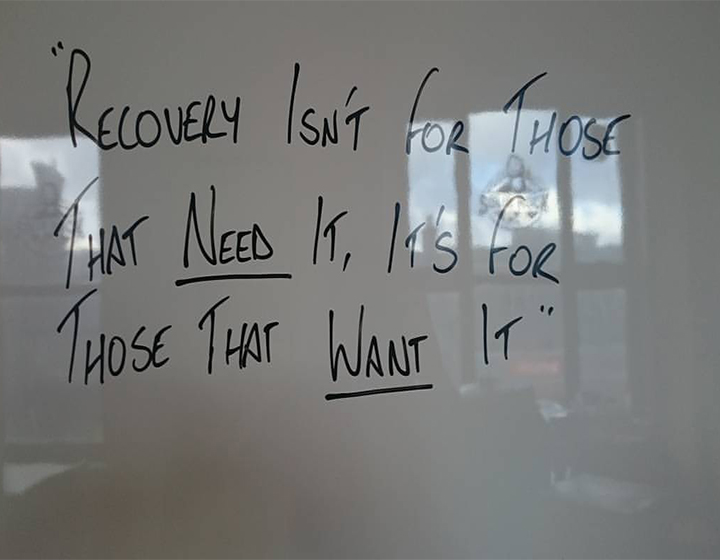 "Recovery Isn't For Those
That Need It, It's For
Those That Want It"